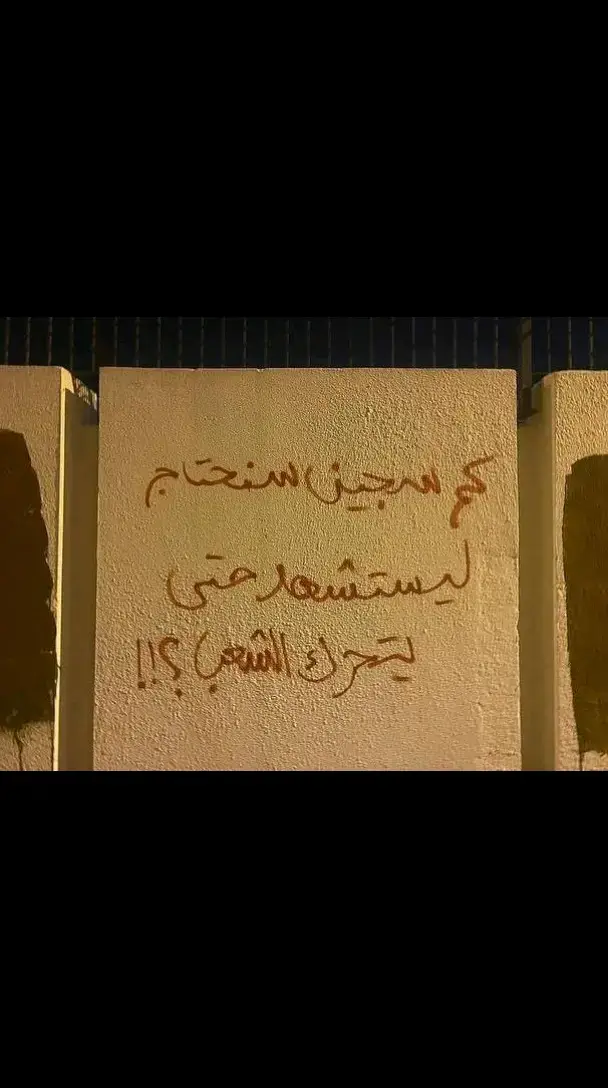 كم سجين سنحتاج
ليستشهد حتى
ليتحرك الشعب؟!!